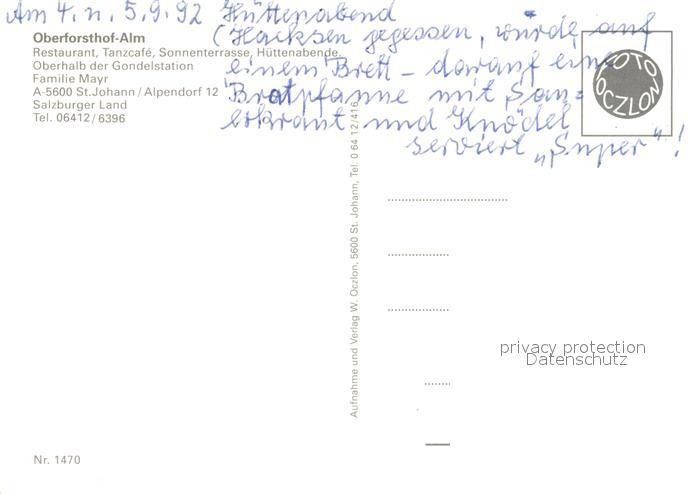 Am 4. u. 5.9.92 Hüttenabend
(Hacksen gegessen, würde auf
einem Brett – darauf eine
Bratpfanne mit Sau=
erkraut und Knödel
serviert „Super“!
Oberforsthof-Alm
Restaurant, Tanzcafé, Sonnenterrasse, Hüttenabende.
Oberhalb der Gondelstation
Familie Mayr
A-5600 St.Johann / Alpendorf 12
Salzburger Land
Tel. 06412/6396
FOTO
OCZLON
Aufnahme und Verlag W. Oczlon, 5600 St. Johann, Tel. 0 64 12 / 416
privacy protection
Datenschutz
Nr. 1470